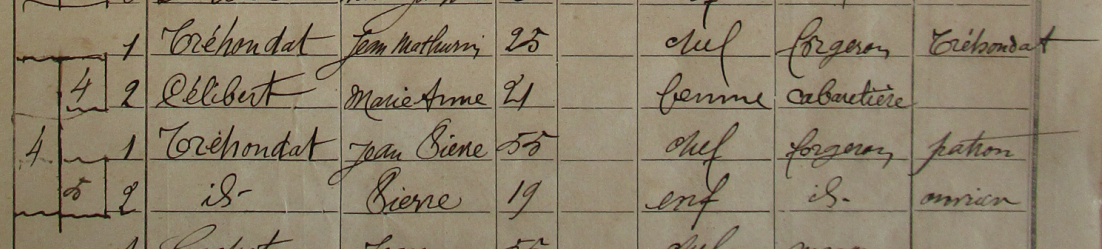 1 Tréhondat Jean Mathurin 25 chef forgeron Tréhondat
4 2 Célibert Marie Anne 21 femme cabaretière
4 1 Tréhondat Jean Pierre 55 chef forgeron patron
5 2 id- Pierre 19 enf id- ouvrier